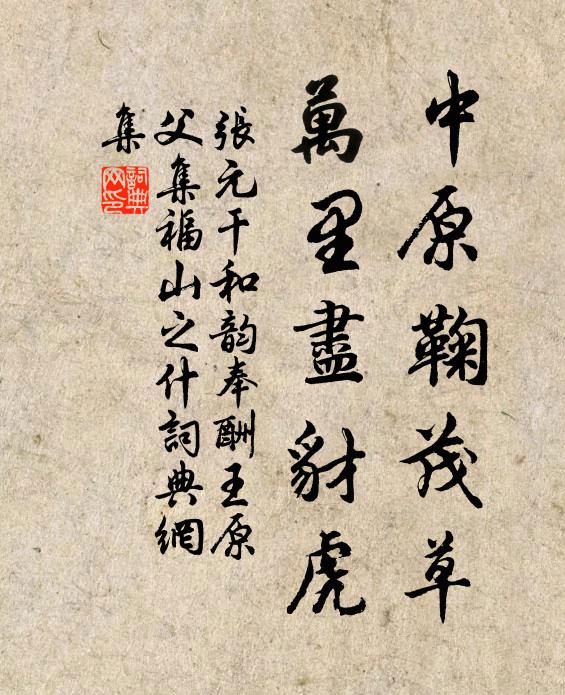 中原鞠茂草
萬里盡豺虎
張元干和韵奉酬王原
父集福山之什詞典網
集
詞典
网印